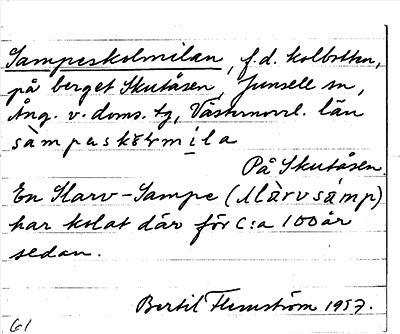 Sampeskolmilan, f.d. kolbotten,
på berget Skutåsen, Junsele sn,
Ång. v. doms. tg, Västernorrl. län
sàmpeskɷ̄rmi̱la
På Skutåsen.
En Slarv-Sampe (slàrvsámp)
har kolat där för c:a 100 år
sedan.
Bertil Flemström 1957.
61